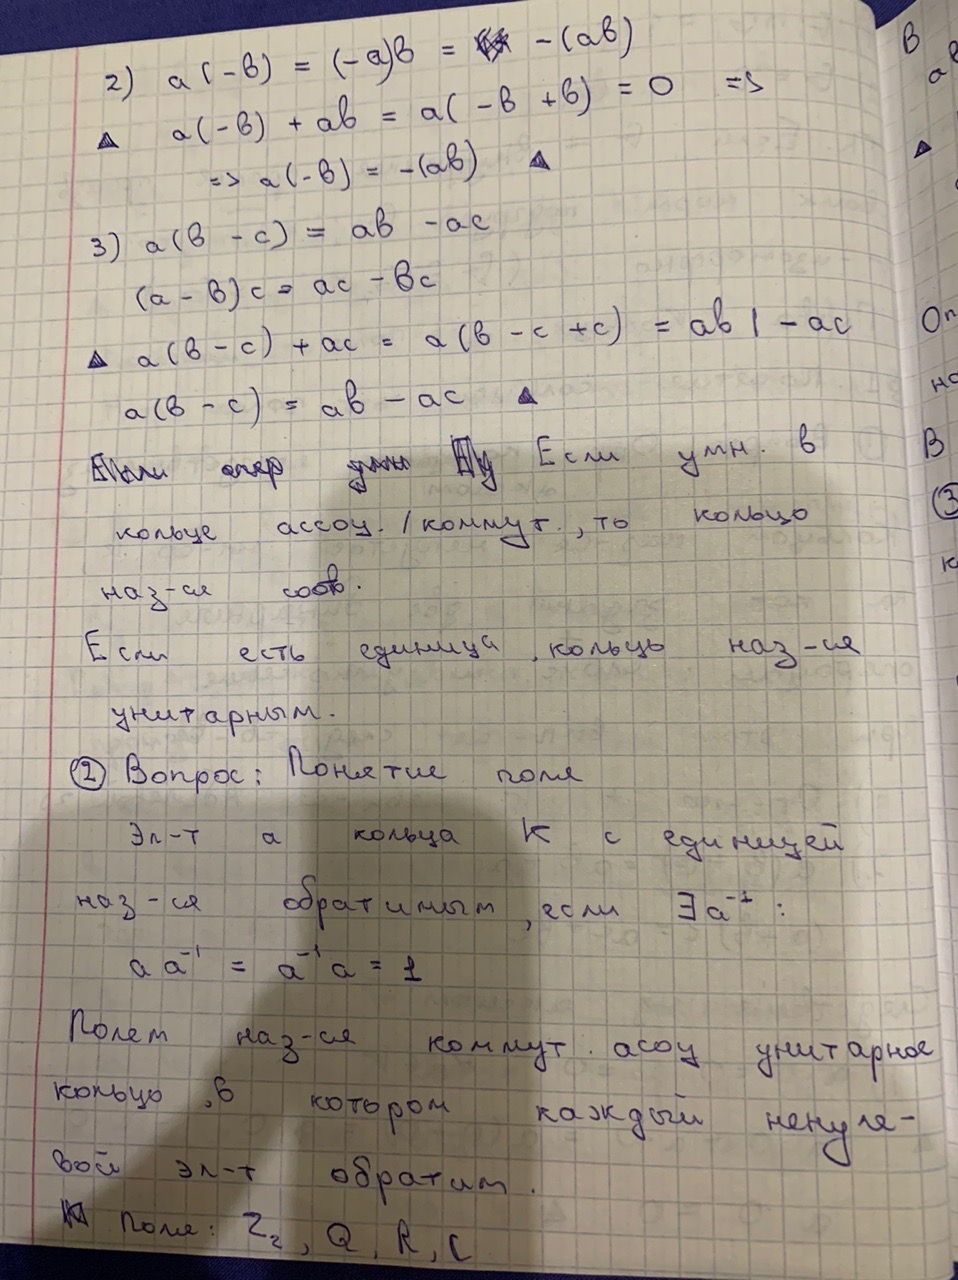 2) a(-в) = (-a)в = -(aв)
▲ a(-в) + aв = a(-в +в) = 0 =>
=> a(-в) = -(aв) ▲
3) a(в - c) = aв - ac
(a - в)c = ac - вc
▲ a(в - c) + ac = a(в - c + c) = aв | - ac
a(в - c) = aв - ac ▲
Если умн. в
кольце ассоц. /коммут., то кольцо
наз-ся соотв.
Если есть единица, кольцо наз-ся
унитарным.
② Вопрос: Понятие поля
Эл-т a кольца K с единицей
наз-ся обратимым, если ∃a⁻¹ :
a a⁻¹ = a⁻¹ a = 1
Полем наз-ся коммут. асоц унитарное
кольцо, в котором каждый ненуле-
вой эл-т обратим.
Поля: Z₂, Q, R, C
В
▲
Оп
но
В
③
к